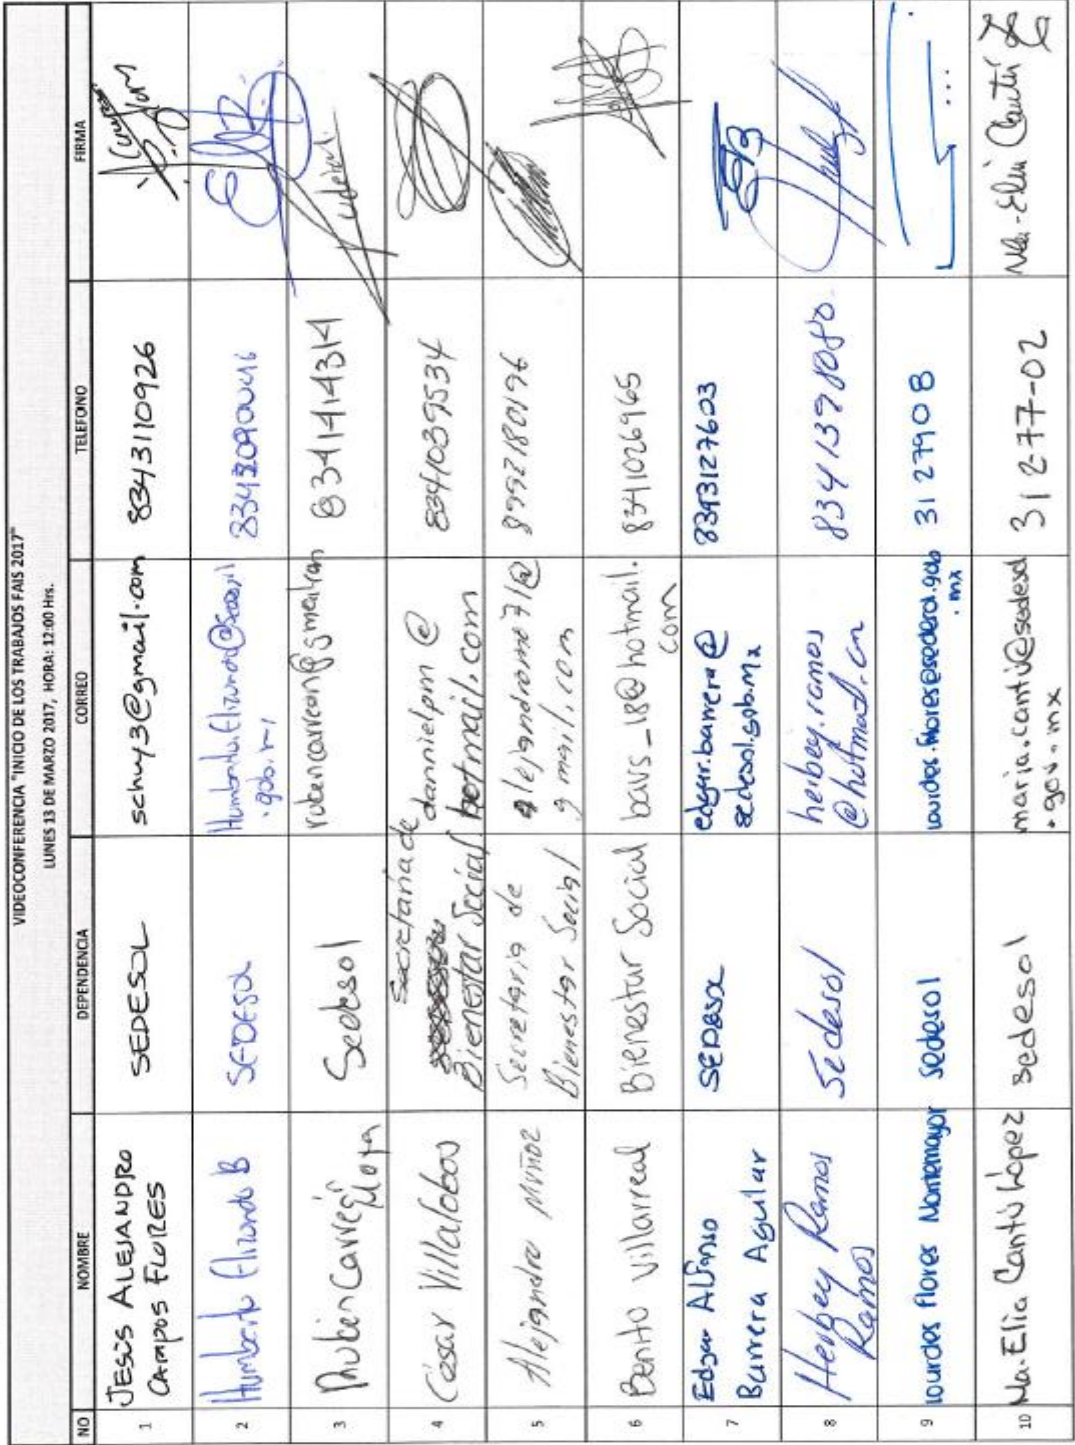 VIDEOCONFERENCIA "INICIO DE LOS TRABAJOS FAIS 2017"
LUNES 13 DE MARZO 2017, HORA: 12:00 Hrs.
NO NOMBRE DEPENDENCIA CORREO TELEFONO FIRMA
1 JESÚS ALEJANDRO
CAMPOS FLORES
SEDESOL
schuy3@gmail.com
8343110926
2 Humberto Elizondo B
SEDESOL
Humberto.Elizondo@
.gob.
3 Rubén
Sedesol
4 César Villalobos
Secretaría de
Bienestar Social
dannielpm@
hotmail.com
8341039534
5 Alejandro Muñoz
Secretaria de
Bienestar Social
alejandrome71@
gmail.com
8992180196
6 Benito Villarreal
Bienestar Social
bavs_18@hotmail.
com
8341026965
7 Edgar Alfonso
Barrera Aguilar
SEDESOL
edgar.barrera@
sedesol.gob.mx
8 Heibey Ramos
Ramos
Sedesol
heibey.ramos
@hotmail.com
834 139 8080
9 Lourdes Flores Montemayor
Sedesol
lourdes.flores@sedesol.gob
.mx
10 Ma. Elia Cantú López
Sedesol
maria.cantu@sedesol
.gov.mx
31 2-77-02
Ma. Elia Cantú